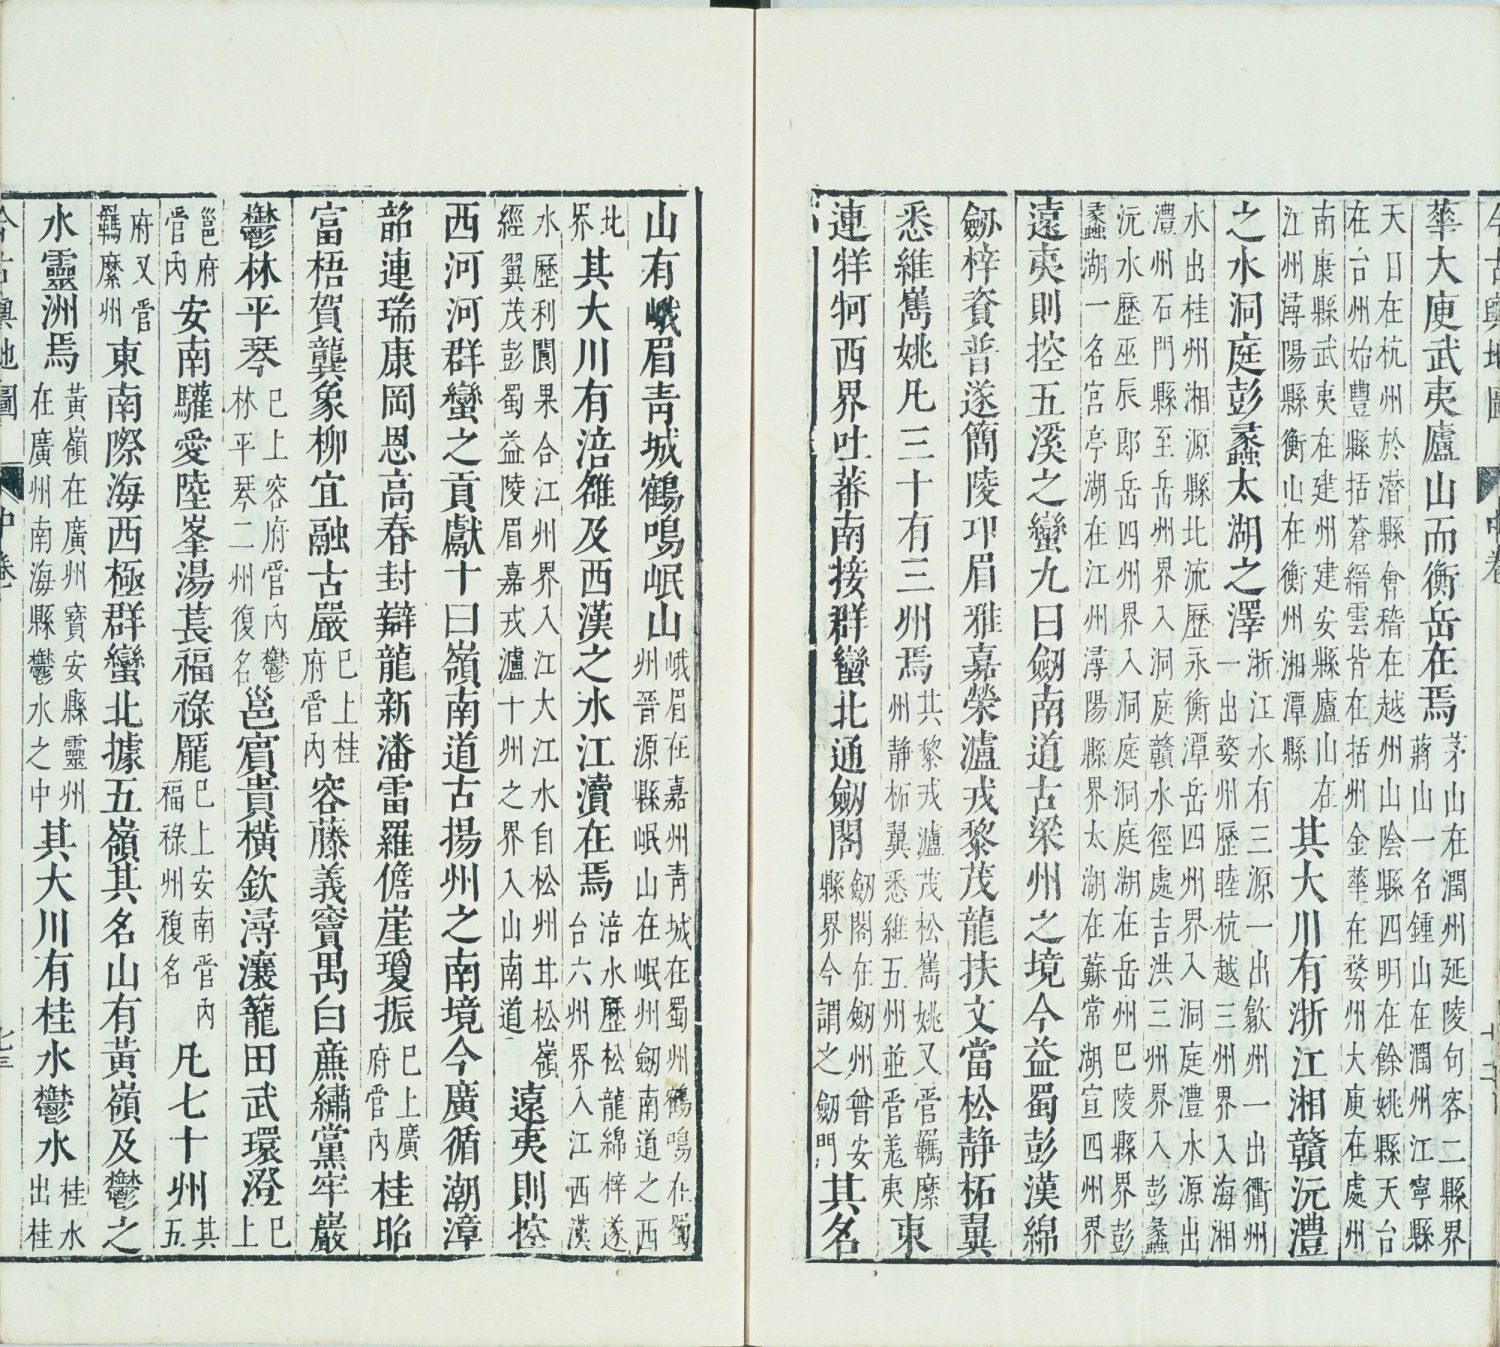 今古輿地圖　中卷
華大庾武夷廬山而衡岳在焉茅山在潤州延陵句容二縣界蔣山一名鍾山在潤州江寧縣
天目在杭州於潛縣會稽在越州山陰縣四明在餘姚縣天台在台州始豐縣括蒼縉雲皆在括州金華在婺州大庾在處州
南康縣武夷在建州建安縣廬山在江州潯陽縣衡山在衡州湘潭縣其大川有浙江湘贛沅澧
之水洞庭彭蠡太湖之澤浙江水有三源一出歙州一出衢州一出婺州歷睦杭越三州界入海湘
水出桂州湘源縣北流歷永衡潭岳四州界入洞庭澧水源出澧州石門縣至岳州界入洞庭贛水徑處吉洪三州界入彭蠡
沅水歷巫辰郎岳四州界入洞庭洞庭湖在岳州巴陵縣界彭蠡湖一名宮亭湖在江州潯陽縣界太湖在蘇常湖宣四州界
遠夷則控五溪之蠻九曰劒南道古梁州之境今益蜀彭漢綿
劒梓資普遂簡陵邛眉雅嘉榮瀘戎黎茂龍扶文當松静柘翼
悉維嶲姚凡三十有三州焉其黎戎瀘茂松嶲姚又管羈縻州静柘翼悉維五州並管羌夷東
連牂牁西界吐蕃南接群蠻北通劒閣劒閣在劒州曾安縣界今謂之劒門其名
山有峨眉青城鶴鳴岷山峨眉在嘉州青城在蜀州鶴鳴在蜀州晉源縣岷山在岷州劒南道之西
北界其大川有涪雒及西漢之水江瀆在焉涪水歷松龍綿梓遂台六州界入江西漢
水歷利閬果合江州界入江大江水自松州茸松嶺經翼茂彭蜀益陵眉嘉戎瀘十州之界入山南道遠夷則控
西河河群蠻之貢獻十曰嶺南道古揚州之南境今廣循潮漳
韶連瑞康岡恩高春封辯龍新潘雷羅儋崖瓊振巳上廣府管內桂昭
富梧賀龔象柳宜融古嚴巳上桂府管內容藤義竇禺白㢘繡黨牢巖
鬱林平琴巳上容府管內鬱林平琴二州復名邕賓貴橫欽潯瀼籠田武環澄巳上
邕府管內安南驩愛陸峯湯萇福祿龎巳上安南管內福祿州複名凡七十州其五
府又管羈縻州東南際海西極群蠻北據五嶺其名山有黃嶺及鬱之
水靈洲焉黃嶺在廣州寶安縣靈州在廣州南海縣鬱水之中其大川有桂水鬱水桂水出桂
今古輿地圖　中卷